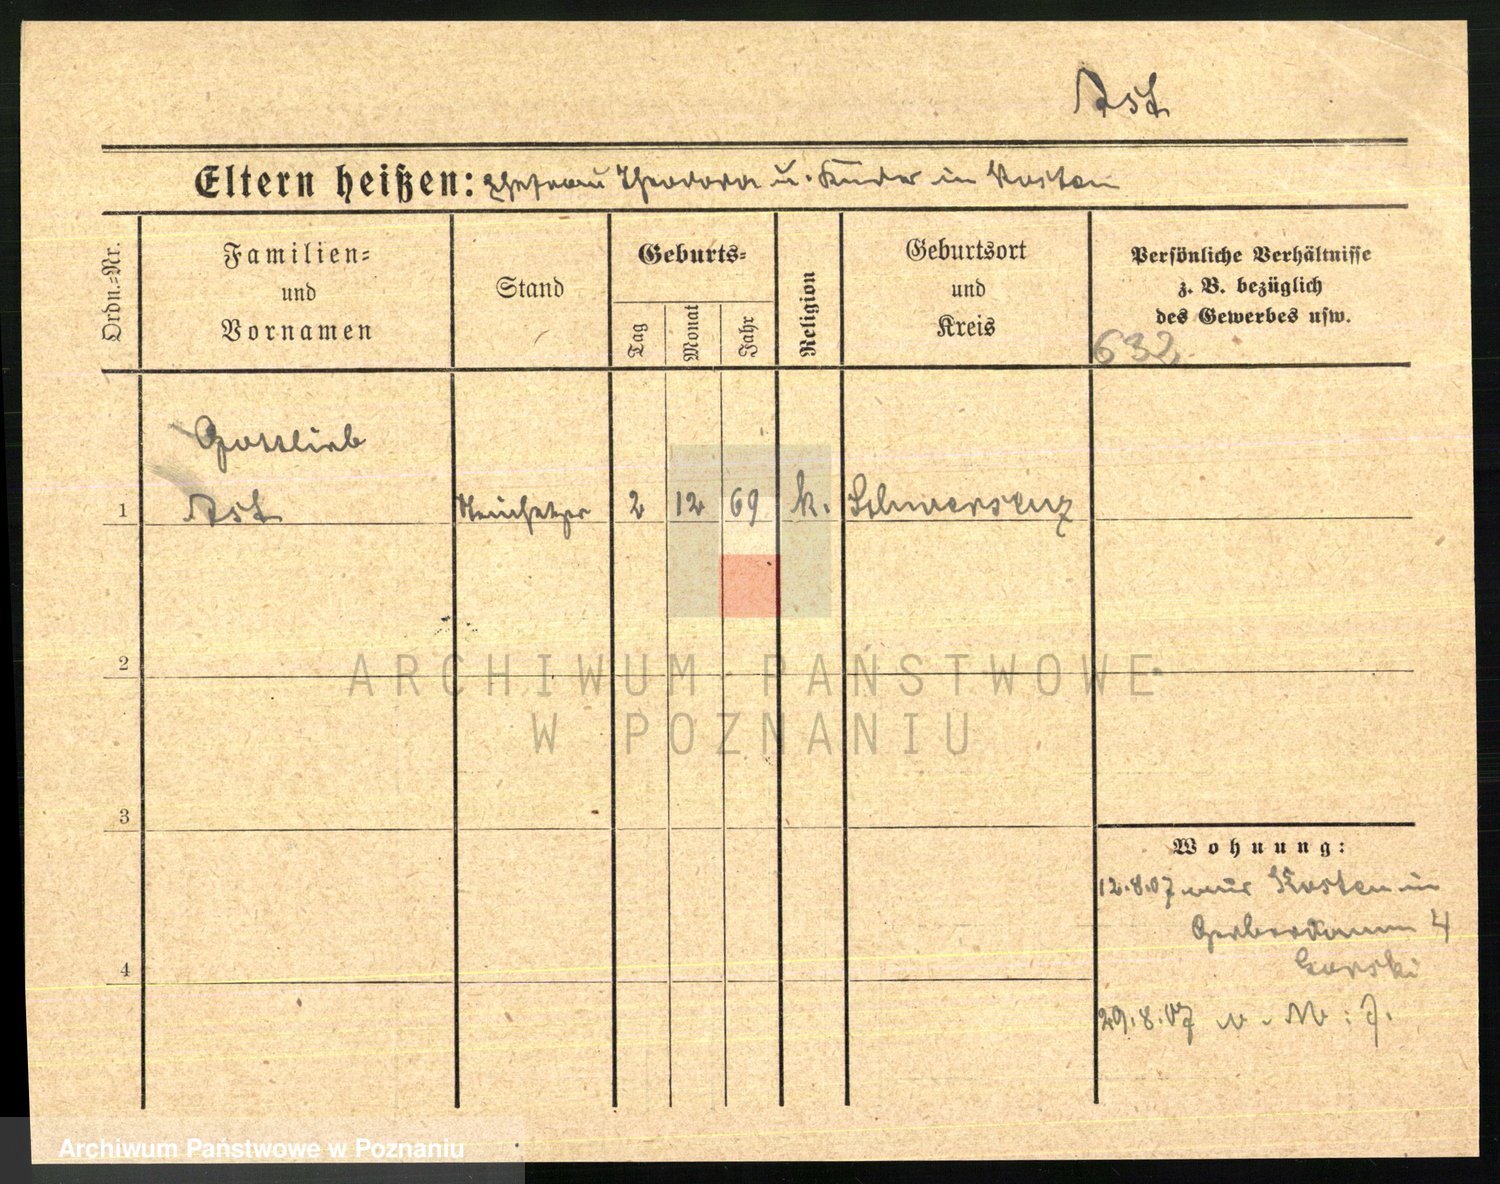 Ast
Eltern heißen: Ehefrau Theodora u. Kinder in Kosten
Ordn.=Nr.
Familien=
und
Vornamen
Stand
Geburts=
Tag
Monat
Jahr
Religion
Geburtsort
und
Kreis
Persönliche Verhältnisse
z. B. bezüglich
des Gewerbes usw.
632
Gottlieb
1 Ast 2 12 69 k. Schwersenz
2
3
4
Wohnung:
12.8.07 aus Kosten in
Gerberdamm 4
Gorski
29.8.07
ARCHIWUM PAŃSTWOWE
W POZNANIU
Archiwum Państwowe w Poznaniu